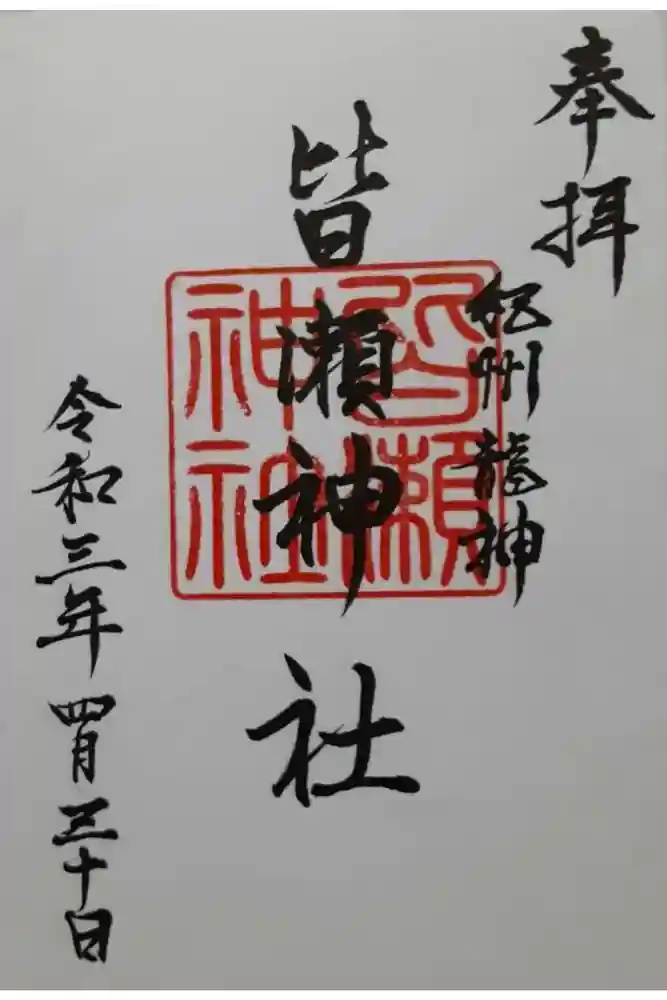 奉拝
紀州龍神
皆瀬神社
皆瀬神社
令和三年四月三十日